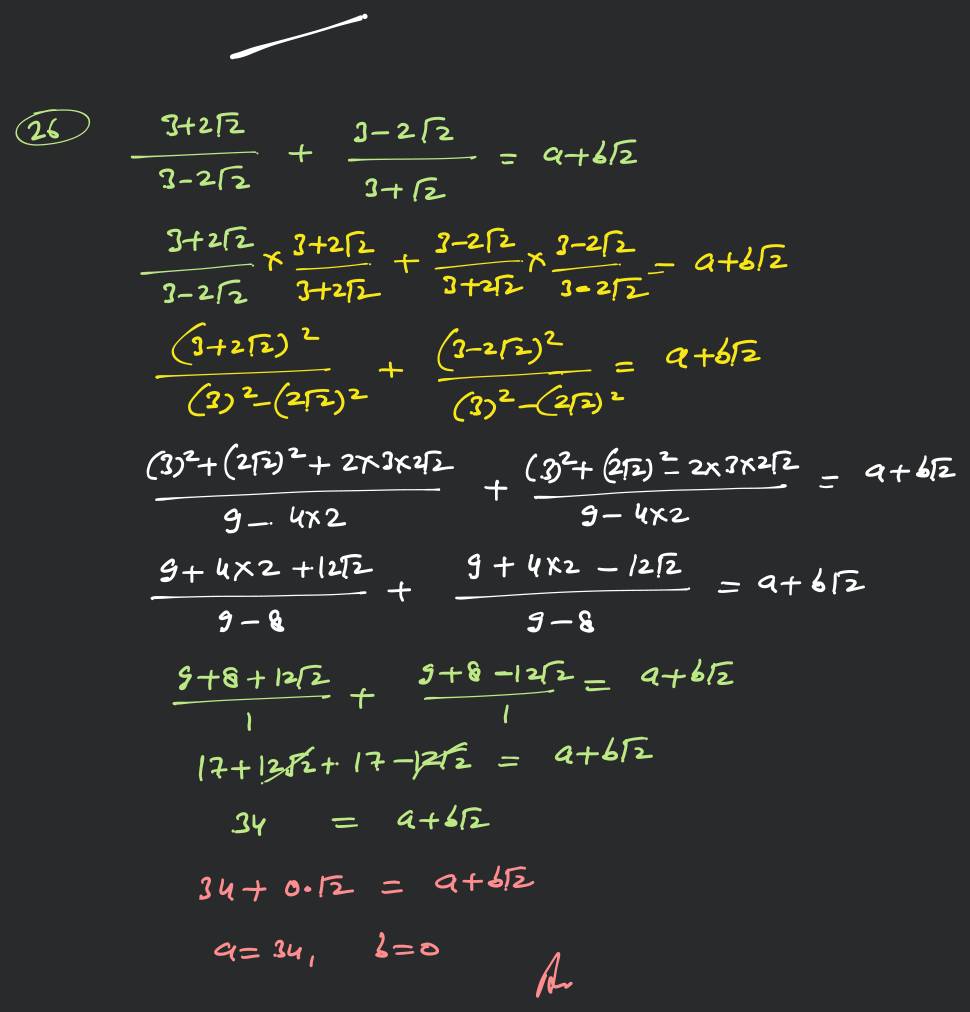 26 (3+2√2)/(3-2√2) + (3-2√2)/(3+√2) = a+b√2
(3+2√2)/(3-2√2) × (3+2√2)/(3+2√2) + (3-2√2)/(3+2√2) × (3-2√2)/(3-2√2) = a+b√2
(3+2√2)²/((3)²-(2√2)²) + (3-2√2)²/((3)²-(2√2)²) = a+b√2
((3)²+(2√2)²+2×3×2√2)/(9-4×2) + ((3)²+(2√2)²-2×3×2√2)/(9-4×2) = a+b√2
(9+4×2+12√2)/(9-8) + (9+4×2-12√2)/(9-8) = a+b√2
(9+8+12√2)/1 + (9+8-12√2)/1 = a+b√2
17+12√2+17-12√2 = a+b√2
34 = a+b√2
34+0.√2 = a+b√2
a=34, b=0